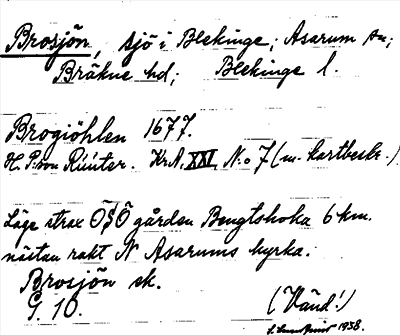 Brosjön, sjö i Blekinge; Asarum sn;
Bräkne hd; Blekinge l.
Brogiöhlen 1677.
H. P. von Rüüter. Kr.A. XXI, N:o 7 (m. kartbeskr.)
Läge strax ÖSÖ gården Bengtshoka 6 km.
nästan rakt N Asarums kyrka.
Brosjön sk.
G. 10. (Vänd!)
1938.